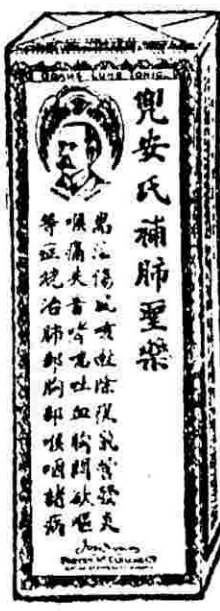 DOANS LUNG TONIC
兜安氏補肺聖藥
患治傷風咳嗽除痰氣管發炎
喉痛失音哮喘吐血胸悶欲嘔
等症統治肺部胸部喉咽諸病